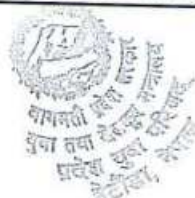 बागमती प्रदेश सरकार
युवा तथा खेलकुद मन्त्रालय
प्रदेश युवा परिषद्
हेटौंडा, नेपाल